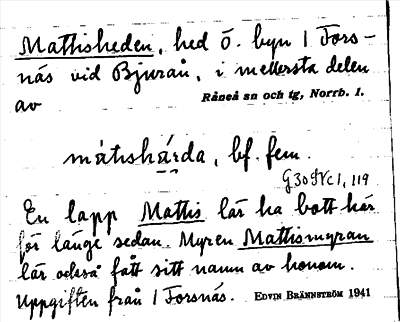 Mattisheden, hed ö. byn 1 Fors-
näs vid Bjuraån, i mellersta delen
av Råneå sn och tg, Norrb. l.
mátishæ̀ida, bf. fem.
G30 SVc1, 119
En lapp Mattis lär ha bott här
för länge sedan. Myren Mattismyran
lär också fått sitt namn av honom.
Uppgiften från 1 Forsnäs. EDVIN BRÄNNSTRÖM 1941